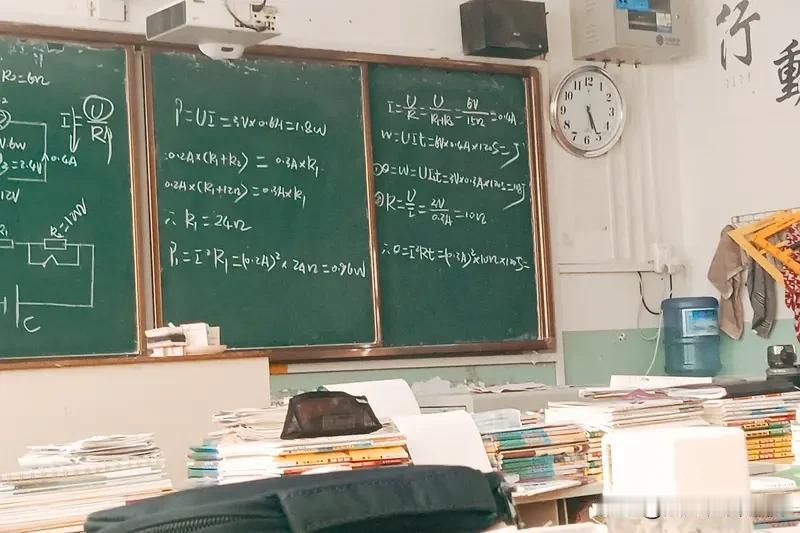 R₂=6Ω
I=U/R
0.4A
12V
R₂=12Ω
C
P=UI=3V×0.6A=1.8W
∴0.2A×(R₁+R₂)=0.3A×R₁
0.2A×(R₁+12Ω)=0.3A×R₁
∴R₁=24Ω
P₁=I²R₁=(0.2A)²×24Ω=0.96W
I=U/R=U/R₁+R₂=6V/15Ω=0.4A
W=UIt=6V×0.4A×120S=J
①Q=W=UIt=
②R=U/I=2V/0.2A=10Ω
∴Q=I²Rt=(0.2A)²×10Ω×120S=
行
動